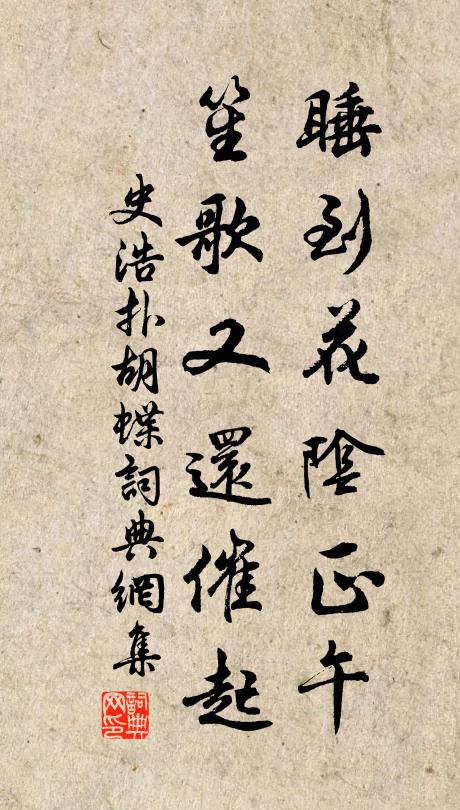 睡到花陰正午
笙歌又還催起
史浩扑胡蝶詞典網集
詞典網印